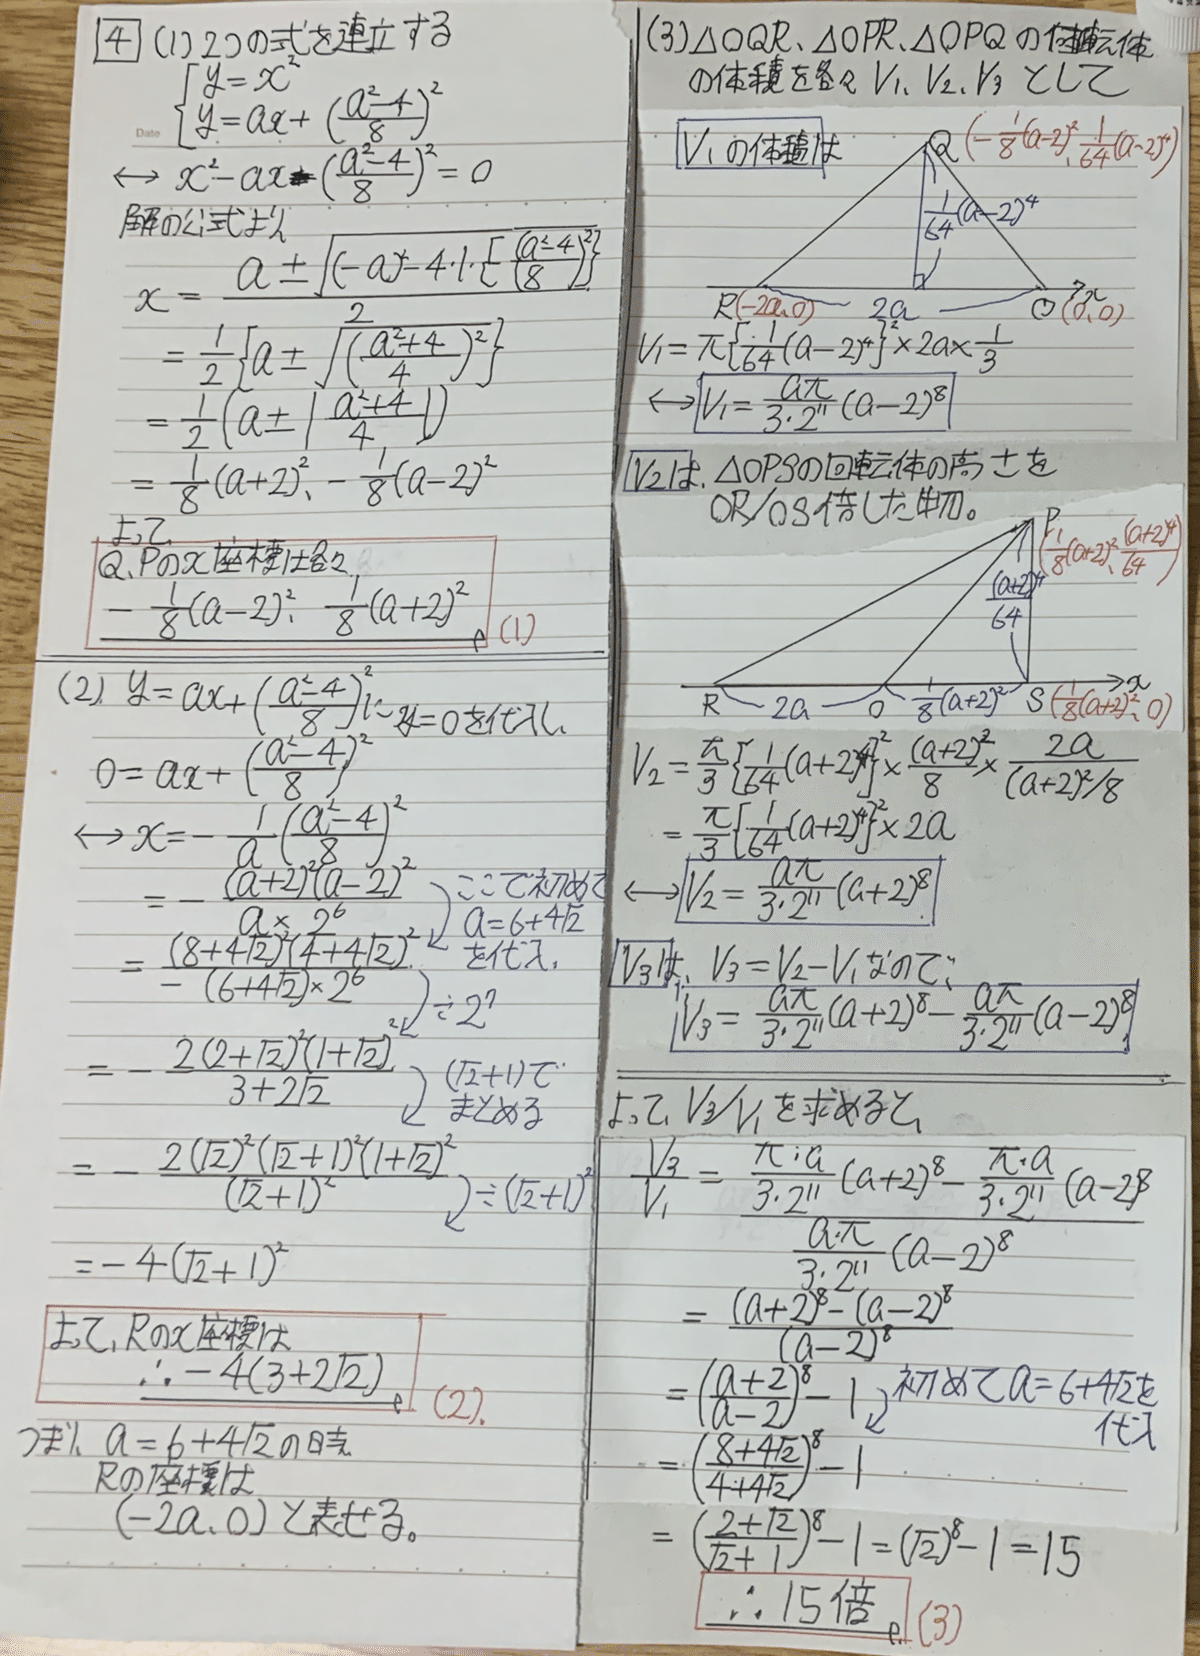 4 (1) 2つの式を連立する
y=x²
y=ax+((a²-4)/8)²
Date
↔ x²-ax-((a²-4)/8)²=0
解の公式より
x = (a±√((-a)²-4・1・{-((a²-4)/8)²}))/2
= 1/2{a±√(((a²+4)/4)²)}
= 1/2(a±|(a²+4)/4|)
= 1/8(a+2)²、-1/8(a-2)²
よって、
Q、Pのx座標は各々
-1/8(a-2)²、1/8(a+2)²
(1)
(2) y=ax+((a²-4)/8)²にy=0を代入し
0=ax+((a²-4)/8)²
↔ x=-1/a((a²-4)/8)²
= -(a+2)²(a-2)²/(a×2⁶)
ここで初めて
a=6+4√2
を代入。
= (8+4√2)²(4+4√2)²/(-(6+4√2)×2⁶)
÷2⁷
= -2(2+√2)²(1+√2)²/(3+2√2)
(√2+1)で
まとめる
= -2(√2)²(√2+1)²(1+√2)²/(√2+1)²
÷(√2+1)²
=-4(√2+1)²
よって、Rのx座標は
∴-4(3+2√2)
(2).
つまり、a=6+4√2の時
Rの座標は
(-2a、0)と表せる。
(3) △OQR、△OPR、△OPQの回転体
の体積を各々V₁、V₂、V₃として
V₁の体積は
Q(-1/8(a-2)²、1/64(a-2)⁴)
1/64(a-2)⁴
R(-2a、0) 2a O(0、0) x
V₁=π{1/64(a-2)⁴}²×2a×1/3
↔ V₁=aπ/(3・2¹¹)(a-2)⁸
V₂は、△OPSの回転体の高さを
OR/OS倍した物。
P(1/8(a+2)²、(a+2)⁴/64)
(a+2)⁴/64
R 2a O 1/8(a+2)² S(1/8(a+2)²、0) x
V₂=π/3{1/64(a+2)⁴}²×(a+2)²/8×2a/((a+2)²/8)
=π/3{1/64(a+2)⁴}²×2a
↔ V₂=aπ/(3・2¹¹)(a+2)⁸
V₃は、V₃=V₂-V₁なので、
V₃=aπ/(3・2¹¹)(a+2)⁸-aπ/(3・2¹¹)(a-2)⁸
よって、V₃/V₁を求めると、
V₃/V₁=(π・a/(3・2¹¹)(a+2)⁸-π・a/(3・2¹¹)(a-2)⁸)/(a・π/(3・2¹¹)(a-2)⁸)
=((a+2)⁸-(a-2)⁸)/(a-2)⁸
=((a+2)/(a-2))⁸-1
初めてa=6+4√2を
代入
=((8+4√2)/(4+4√2))⁸-1
=((2+√2)/(√2+1))⁸-1=(√2)⁸-1=15
∴15倍
(3)